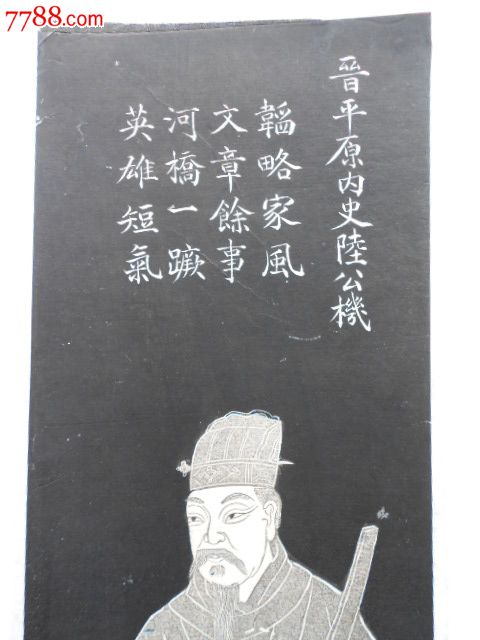 7788.com
晉平原内史陸公機
韜略家風
文章餘事
河橋一蹶
英雄短氣